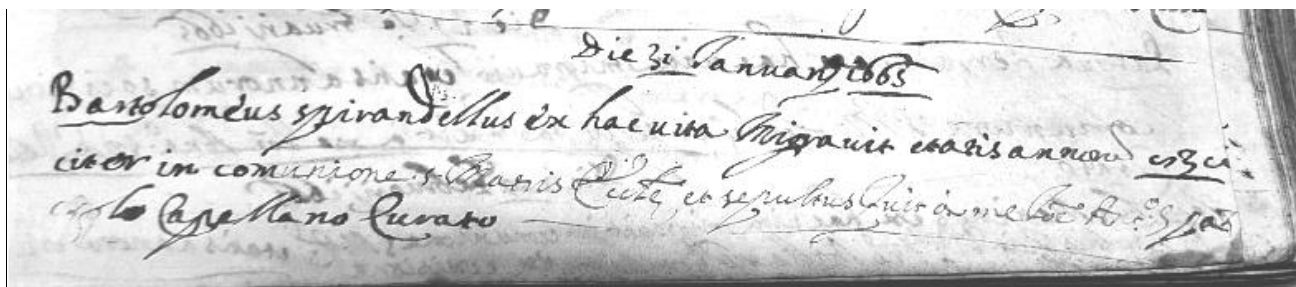 Die 31 Januarij 1665
Bartolomeus spirandellus ex hac uita Migrauit etatis annorũ
citer in comunione s. Matris et sepultus fuit a me
Capellano Curato